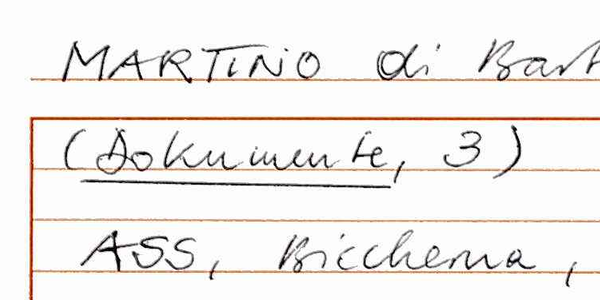 MARTINO di Bart
(Dokumente, 3)
ASS, Biccherna,